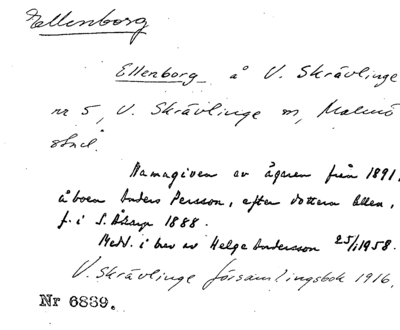 Ellenborg
Ellenborg å V. Skrävlinge
nr 5, V. Skrävlinge sn, Malmö
stad.
Namngiven av ägaren från 1891,
åboen Anders Persson, efter dottern Ellen,
f. i S. Åkarp 1888.
Medd. i brev av Helge Andersson 25/1 1958.
V. Skrävlinge församlingsbok 1916.
Nr 6839.